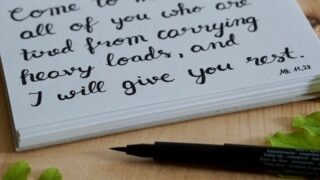 Come to
all of you who are
tired from carrying
heavy loads, and
I will give you rest.
Mt. 11,28